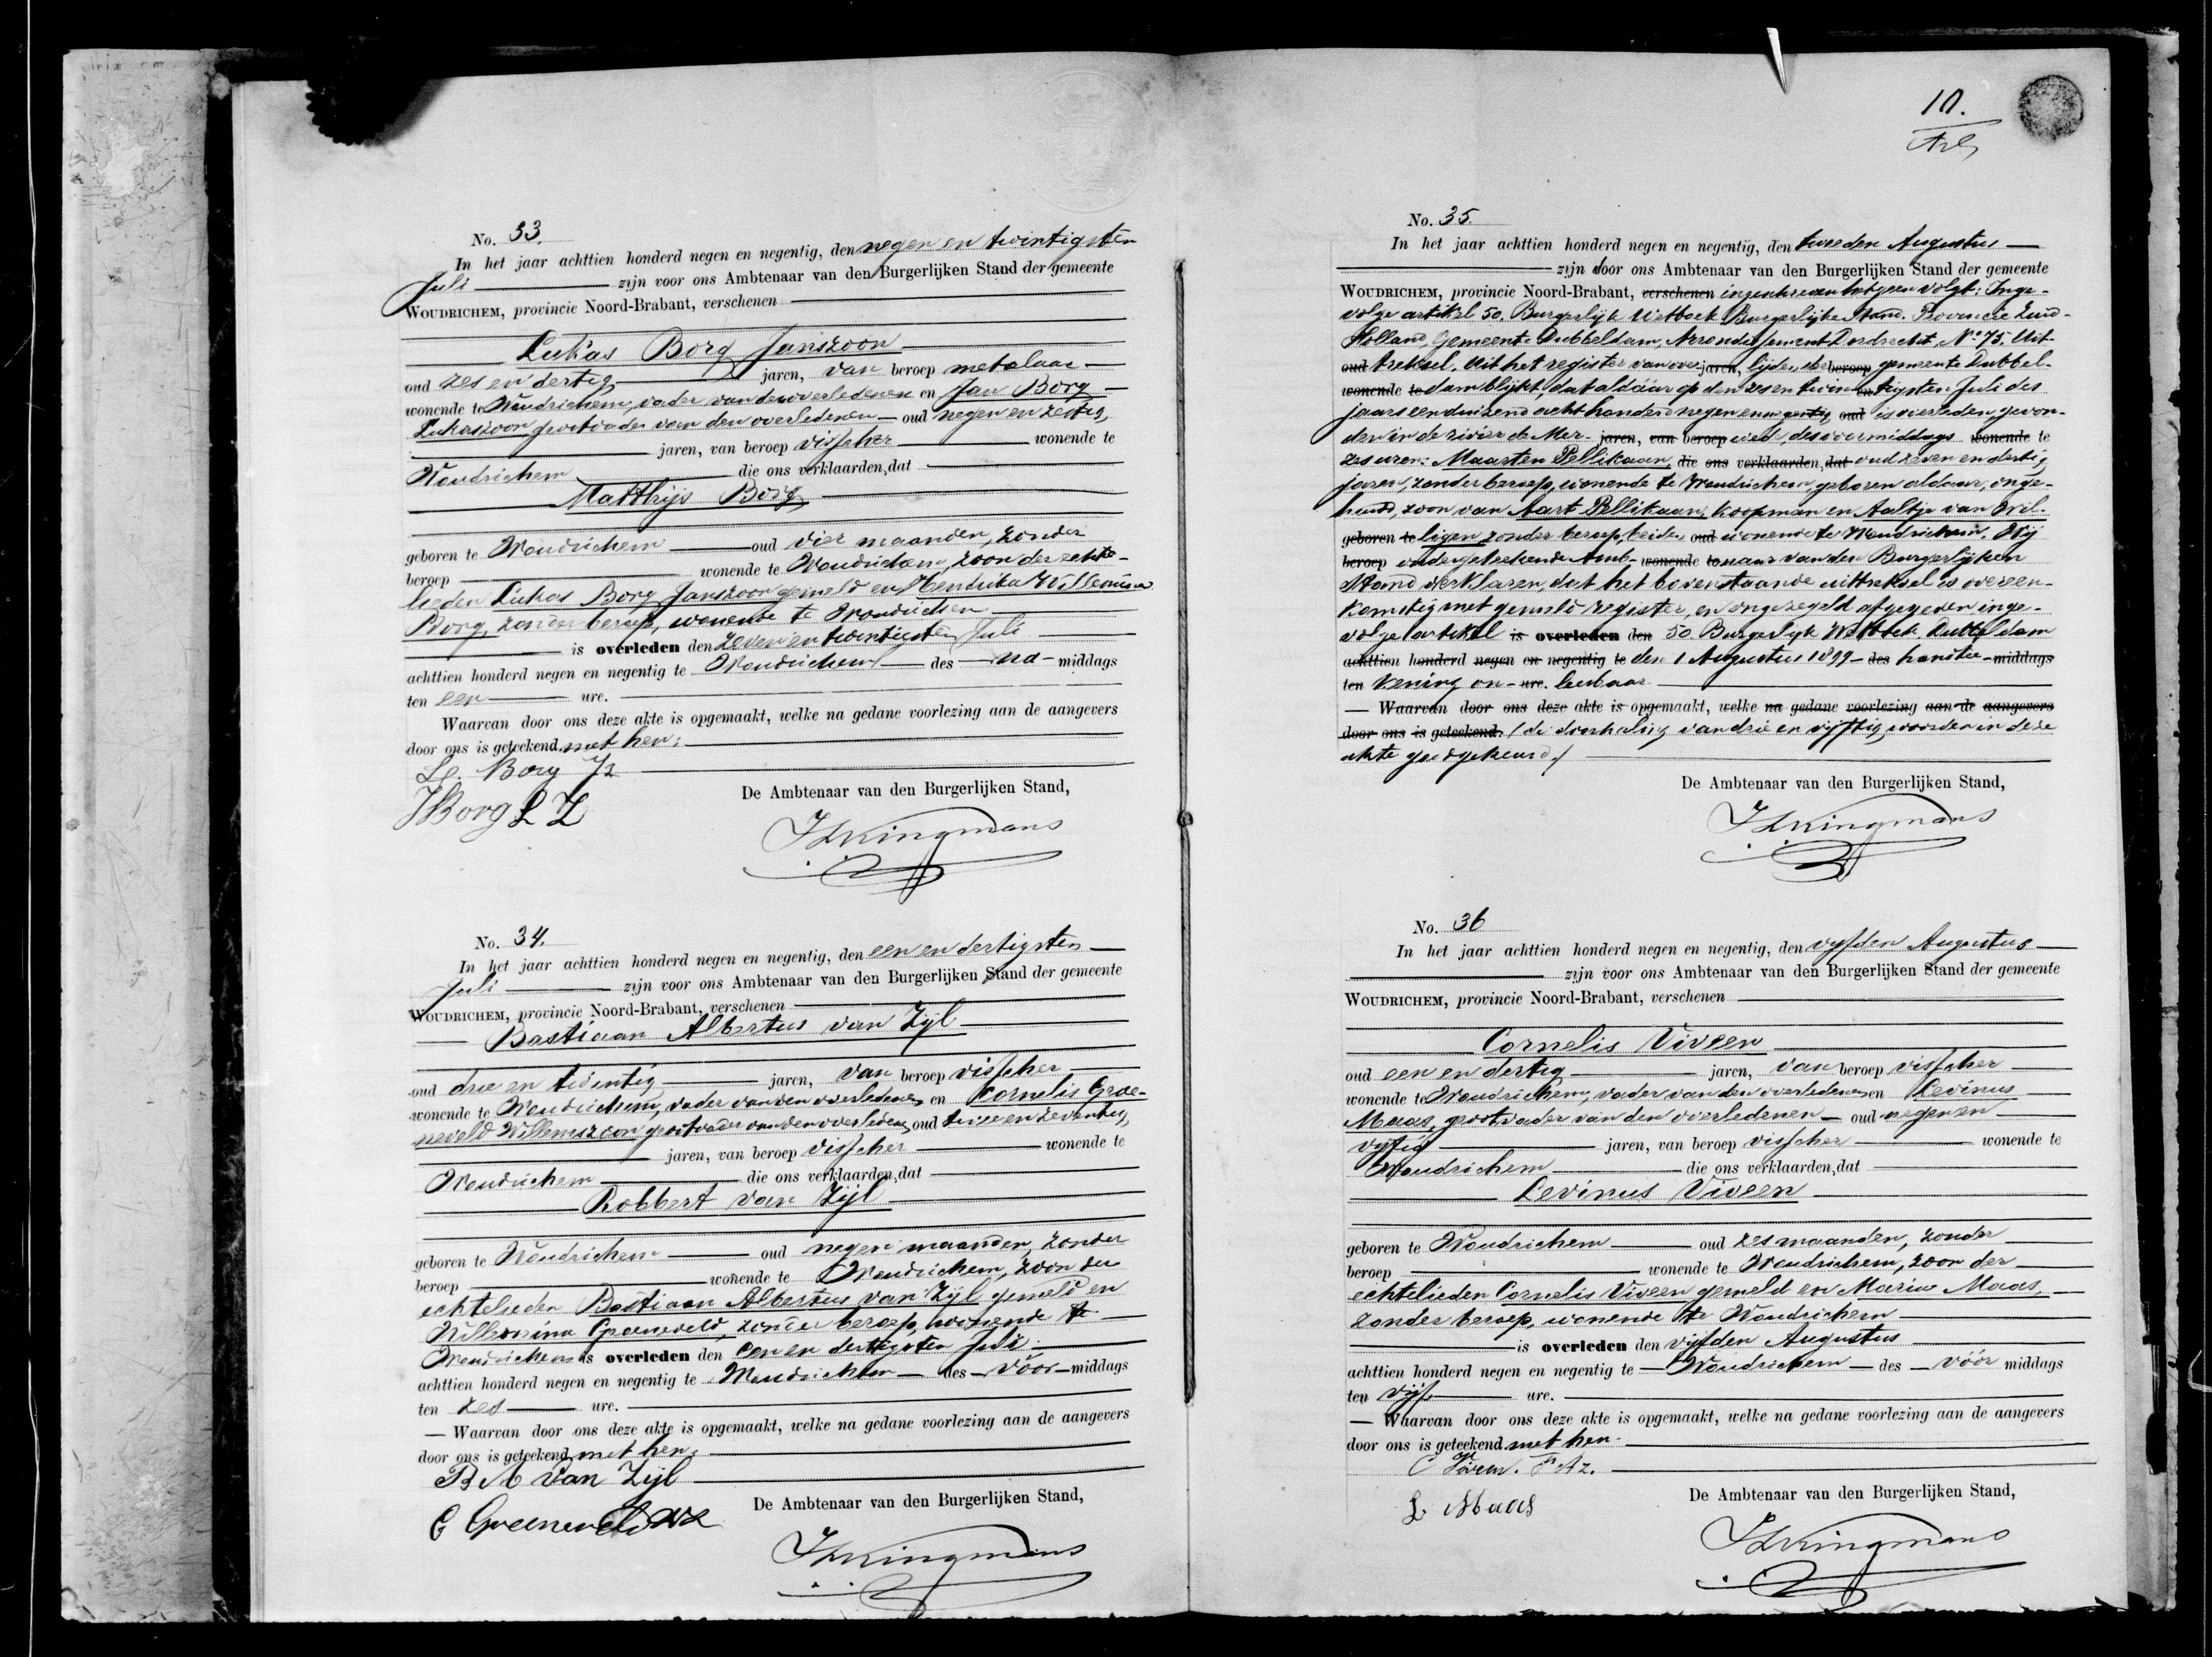 No. 33.
In het jaar achttien honderd negen en negentig, den negen en twintigsten
Juli zijn voor ons Ambtenaar van den Burgerlijken Stand der gemeente
WOUDRICHEM, provincie Noord-Brabant, verschenen
Lukas Borg Janszoon
oud zes en dertig jaren, van beroep metselaar
wonende te Woudrichem, vader van den overledenen en Jan Borg
Lukaszoon grootvader van den overledenen oud negen en zestig,
jaren, van beroep visscher wonende te
Woudrichem die ons verklaarden, dat
Matthijs Borg
geboren te Woudrichem oud vier maanden, zonder
beroep wonende te Woudrichem, zoon der echte-
lieden Lukas Borg Janszoon gemeld en Hendrika Willemina
Borg, zonder beroep, wonende te Woudrichem
is overleden den zeven en twintigsten Juli
achttien honderd negen en negentig te Woudrichem des na middags
ten een ure.
Waarvan door ons deze akte is opgemaakt, welke na gedane voorlezing aan de aangevers
door ons is geteekend met hen:
Borg Jz
De Ambtenaar van den Burgerlijken Stand,
JBorg L Z
Kingmans
No. 34.
In het jaar achttien honderd negen en negentig, den een en dertigsten
Juli zijn voor ons Ambtenaar van den Burgerlijken Stand der gemeente
WOUDRICHEM, provincie Noord-Brabant, verschenen
Bastiaan Albertus van Zijl
oud drie en twintig jaren, van beroep visscher
wonende te Woudrichem, vader van den overledenen en Cornelis Groe-
neveld Willemszoon grootvader van den overledenen oud twee en zeventig,
jaren, van beroep visscher wonende te
Woudrichem die ons verklaarden, dat
Robbert van Zijl
geboren te Woudrichem oud negen maanden, zonder
beroep wonende te Woudrichem, zoon der
echtelieden Bastiaan Albertus van Zijl gemeld en
Willemina Groeneveld, zonder beroep, wonende te
Woudrichem is overleden den een en dertigsten Juli
achttien honderd negen en negentig te Woudrichem des vóór middags
ten zes ure.
Waarvan door ons deze akte is opgemaakt, welke na gedane voorlezing aan de aangevers
door ons is geteekend met hen.
B A van Zijl
De Ambtenaar van den Burgerlijken Stand,
C Groeneveld Wz
Kingmans
10.
No. 35.
In het jaar achttien honderd negen en negentig, den tweeden Augustus
zijn door ons Ambtenaar van den Burgerlijken Stand der gemeente
WOUDRICHEM, provincie Noord-Brabant, verschenen ingeschreven hetgeen volgt: Inge-
volge artikel 50. Burgerlijk Wetboek Burgerlijke Stand. Provincie Zuid-
Holland, Gemeente Dubbeldam, Arrondissement Dordrecht, No 75, Uit-
oud treksel. Uit het register van over jaren, lijden der beroep gemeente Dubbel-
wonende te dam blijkt, dat aldaar op den zes en twin en tigsten Juli des
jaars eenduizend achthonderd negen en negentig, oud is overleden gevon-
den in de rivier de Mer- jaren, van beroep wed, des voormiddags wonende te
zes uren: Maarten Pellikaan, die ons verklaarden, dat oud zeven en dertig
jaren, zonder beroep, wonende te Woudrichem, geboren aldaar, onge-
huwd, zoon van Aart Pellikaan, koopman en Aaltje van Wil-
geboren te ligen, zonder beroep, beiden oud wonende te Woudrichem. Wij
beroep ondergeteekende Amb- wonende te tenaar van den Burgerlijken
Stand verklaren, dat het bovenstaande uittreksel is overeen-
komstig met gemeld register, en ongezegeld afgegeven inge-
volge artikel is overleden den 50 Burgerlijk Wetboek. Dubbeldam
achttien honderd negen en negentig te den 1 Augustus 1899 des handtee- middags
ten kening on- ure. leesbaar
Waarvan door ons deze akte is opgemaakt, welke na gedane voorlezing aan de aangevers
door ons is geteekend. (de doorhaling van drie en vijftig woorden in deze
akte goedgekeurd.)
De Ambtenaar van den Burgerlijken Stand,
Kingmans
No. 36
In het jaar achttien honderd negen en negentig, den vijfden Augustus
zijn voor ons Ambtenaar van den Burgerlijken Stand der gemeente
WOUDRICHEM, provincie Noord-Brabant, verschenen
Cornelis Viveen
oud een en dertig jaren, van beroep visscher
wonende te Woudrichem, vader van den overledenen en Levinus
Maas, grootvader van den overledenen oud negen en
vijftig jaren, van beroep visscher wonende te
Woudrichem die ons verklaarden, dat
Levinus Viveen
geboren te Woudrichem oud zes maanden, zonder
beroep wonende te Woudrichem, zoon der
echtelieden Cornelis Viveen gemeld en Maria Maas,
zonder beroep, wonende te Woudrichem
is overleden den vijfden Augustus
achttien honderd negen en negentig te Woudrichem des vóór middags
ten vijf ure.
Waarvan door ons deze akte is opgemaakt, welke na gedane voorlezing aan de aangevers
door ons is geteekend met hen.
C Viveen. Az.
De Ambtenaar van den Burgerlijken Stand,
L. Maas
Kingmans